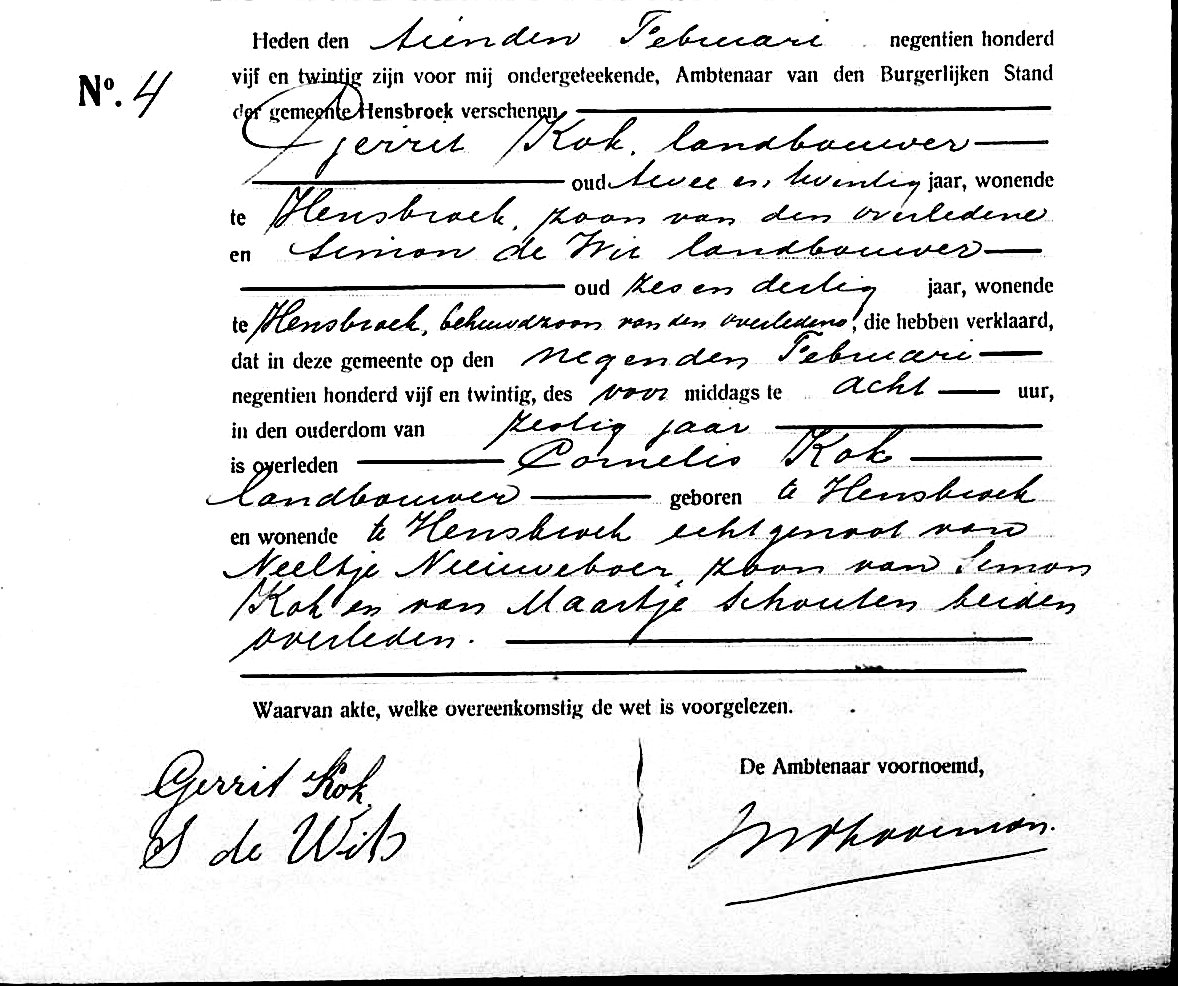 Heden den tienden Februari negentien honderd
vijf en twintig zijn voor mij ondergeteekende, Ambtenaar van den Burgerlijken Stand
No. 4
der gemeente Hensbroek verschenen
Gerrit Kok, landbouwer
oud twee en twintig jaar, wonende
te Hensbroek, zoon van den overledene
en Simon de Wit landbouwer
oud zes en dertig jaar, wonende
te Hensbroek, behuwdzoon van den overledene, die hebben verklaard,
dat in deze gemeente op den negenden Februari
negentien honderd vijf en twintig, des voor middags te acht uur,
in den ouderdom van zestig jaar
is overleden Cornelis Kok
landbouwer geboren te Hensbroek
en wonende te Hensbroek echtgenoot van
Neeltje Nieuweboer, zoon van Simon
Kok en van Maartje Schouten beiden
overleden.
Waarvan akte, welke overeenkomstig de wet is voorgelezen.
De Ambtenaar voornoemd,
Gerrit Kok
S de Wit